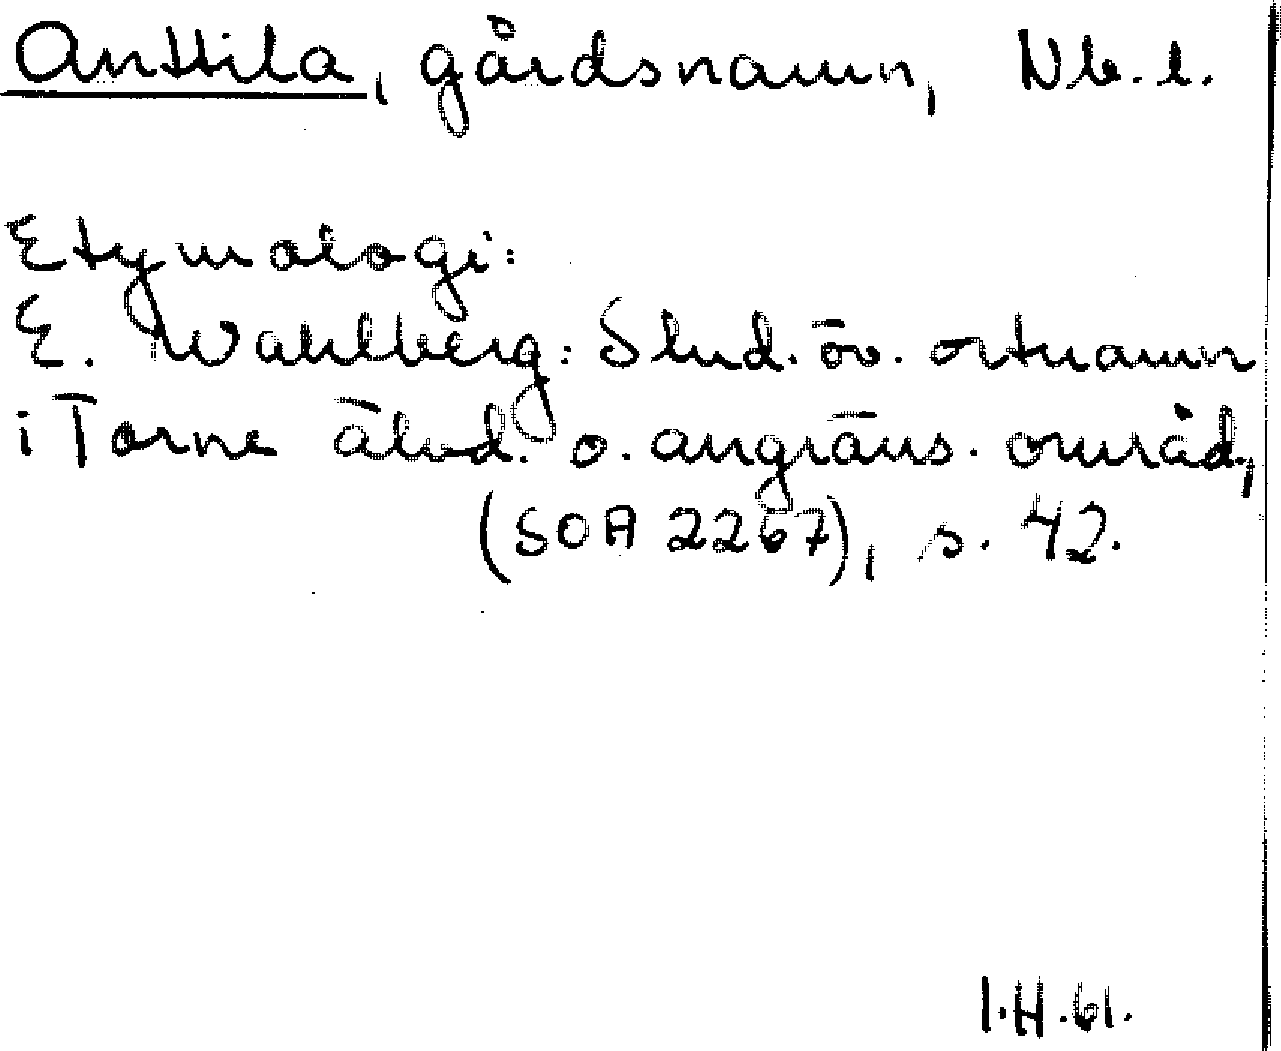 Anttila, gårdsnamn, Nb. l.
Etymologi:
E. Wahlberg: Stud. öv. ortnamn
i Torne älvd. o. angräns. områd.,
(SOA 2267), s. 42.
I.H.61.